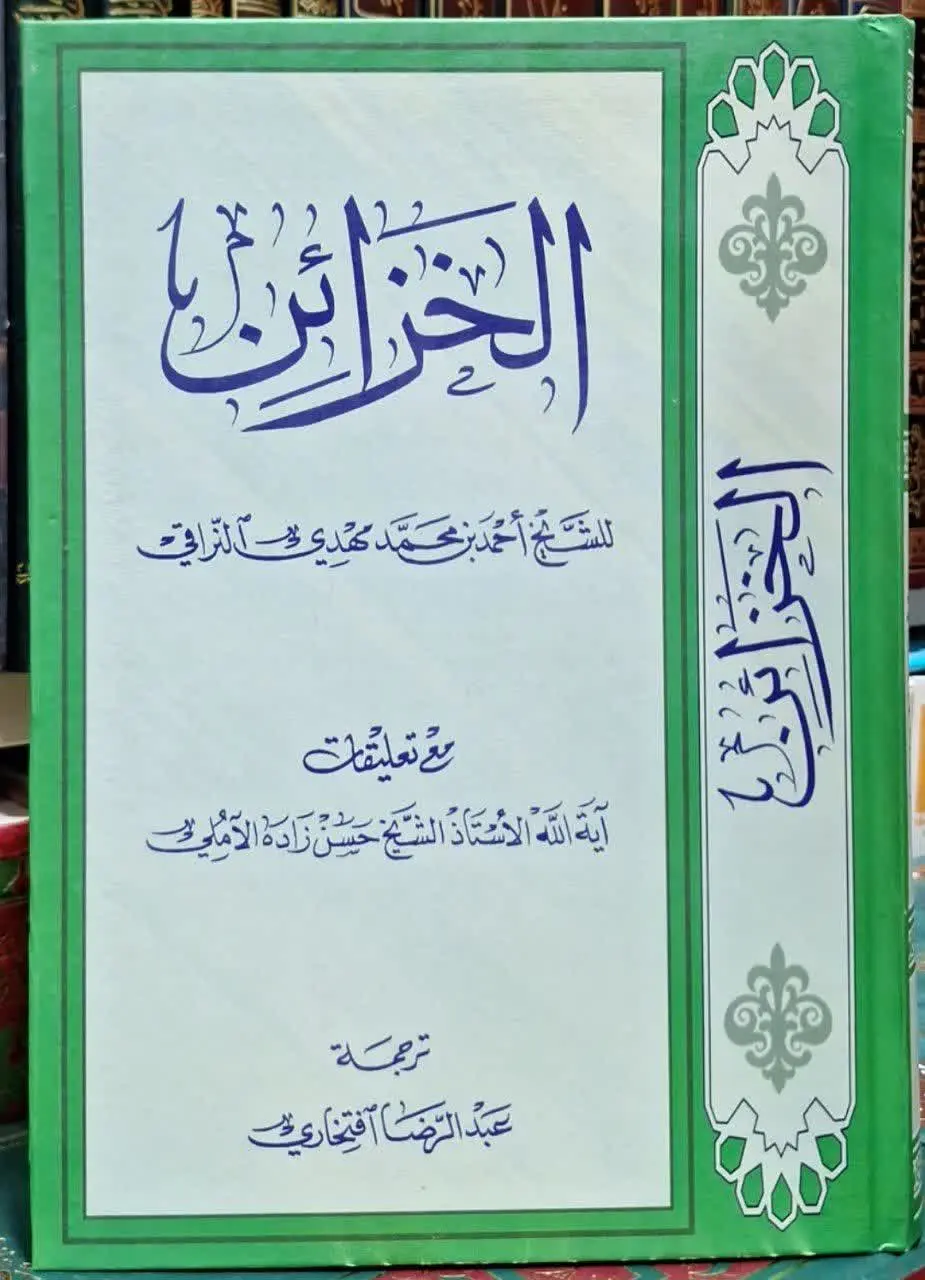 الخزائن
للشَّيْخ أَحْمَد بْن مُحَمَّد مَهْدِي ٱلنَّراقي
مع تعليقات
آيَة اللّه الأُسْتَاذ الشَّيْخ حَسَنْ زَادَه الآمُلي
ترجمَة
عَبْد الرِّضَا ٱفْتِخاري
الخزائن